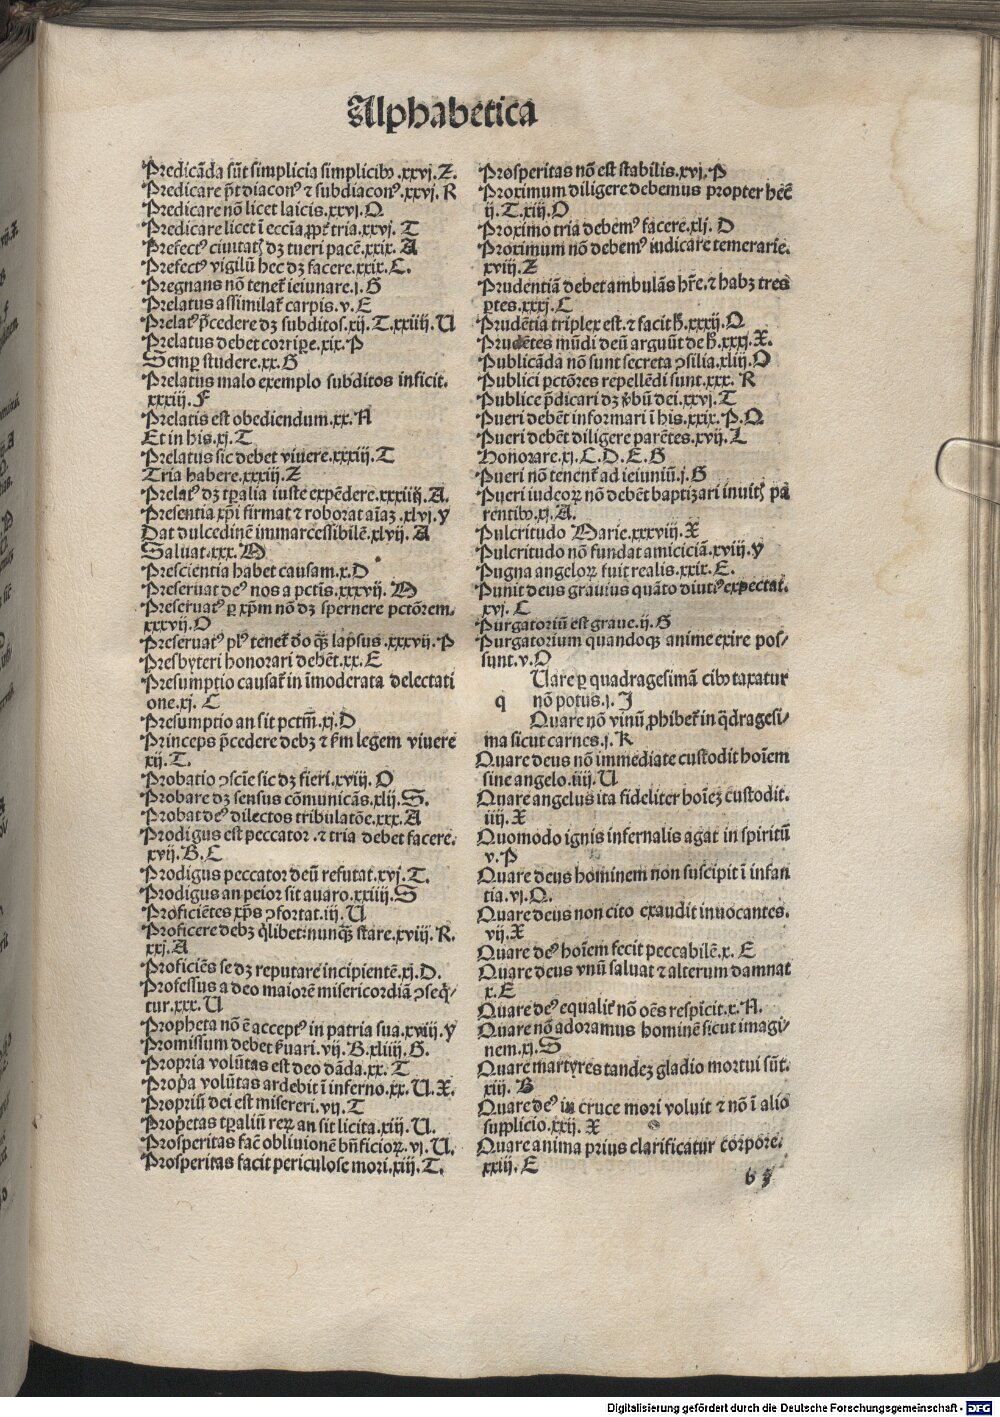 Alphabetica
Predicãda sũt simplicia simplicibꝰ.xxvj.Z.
Predicare p̃t diaconꝰ ⁊ subdiaconꝰ.xxvj.R
Predicare nõ licet laicis.xxvj.Q
Predicare licet ĩ ecc̃ia ꝓpt̃ tria.xxvj.T
Prefectꝰ ciuitatꝭ dꝫ tueri pacẽ.xxix.A
Prefectꝰ vigilũ hec dꝫ facere.xxix.C.
Pregnans nõ tenet̃ ieiunare.j.G
Prelatus assimilat̃ carpis.v.E
Prelatꝰ p̃cedere dꝫ subditos.xij.T.xxiiij.U
Prelatus debet corripe.xix.P
Semꝑ studere.xx.G
Prelatus malo exemplo subditos inficit.
xxxiij.F
Prelatis est obediendum.xx.N
Et in his.xj.T
Prelatus sic debet viuere.xxxiij.T
Tria habere.xxxiij.Z
Prelatꝰ dꝫ tꝑalia iuste expẽdere.xxxiiij.A.
Presentia xp̃i firmat ⁊ roborat aĩaꝫ.xlvj.y
Dat dulcedinẽ immarcessibilẽ.xlvij.A
Saluat.xxx.M
Prescientia habet causam.x.D
Preseruat deꝰ nos a pctis.xxxvij.M
Preseruatꝰ ꝑ xp̃m nõ dꝫ spernere pctõrem.
xxxvij.O
Preseruatꝰ plꝰ tenet̃ deo q̃ꝫ lapsus.xxxvij.P
Presbyteri honorari debẽt.xx.E
Presumptio causat̃ in ĩmoderata delectati
one.xj.C
Presumptio an sit pctm̃.xj.D
Princeps p̃cedere debꝫ ⁊ s̃m legem viuere
xij.T.
Probatio ꝯscĩe sic dꝫ fieri.xviij.O
Probare dꝫ sensus cõmunicãs.xlij.S.
Probat deꝰ dilectos tribulatõe.xxx.A
Prodigus est peccator.⁊ tria debet facere.
xvij.B.C
Prodigus peccator deũ refutat.xvj.T.
Prodigus an peior sit auaro.xxiiij.S
Proficiẽtes xp̃s ꝯfortat.iij.U
Proficere debꝫ q̃libet:nunq̃ꝫ stare.xviij.R.
xxj.A
Proficiẽs se dꝫ reputare incipientẽ.xj.D.
Professus a deo maiorẽ misericordiã ꝯseq̃/
tur.xxx.U
Propheta nõ ẽ acceptꝰ in patria sua.xviij.y
Promissum debet s̃uari.vij.B.xliiij.G.
Propria volũtas est deo dãda.xx.T
Prop̃a volũtas ardebit ĩ inferno.xx.U.X.
Propriũ dei est misereri.vij.T
Prop̃etas tꝑaliũ reꝝ an sit licita.xiij.U.
Prosperitas facẽ obliuionẽ bñficioꝝ.vj.U.
Prosperitas facit periculose mori.xiij.T.
Prosperitas nõ est stabilis.xvj.P
Proximum diligere debemus propter hec̃
ij.T.xiij.O
Proximo tria debemꝰ facere.xlj.D
Proximum nõ debemꝰ iudicare temerarie.
xviij.Z
Prudentiã debet ambulãs hr̃e.⁊ habꝫ tres
ꝑtes.xxxj.C
Prudẽtia triplex est.⁊ facit h̃.xxxij.Q.
Prudẽtes mũdi deũ arguũt de h̃.xxxj.X.
Publicãda nõ sunt secreta ꝯsilia.xliij.O
Publici pctõres repellẽdi sunt.xxx.R
Publice p̃dicari dꝫ v̓bũ dei.xxvj.T
Pueri debẽt informari ĩ his.xxix.P.Q.
Pueri debẽt diligere parẽtes.xvij.L
Honorare.xj.C.D.E.G
Pueri nõ tenent̃ ad ieiuniũ.j.G
Pueri iudeoꝝ nõ debẽt baptizari inuitꝭ pa
rentibꝰ.xj.A.
Pulcritudo Marie.xxxviij.X
Pulcritudo nõ fundat amiciciã.xviij.y
Pugna angeloꝝ fuit realis.xxix.E.
Punit deus grauius quãto diutiꝰ expectat.
xvj.C
Purgatoriũ est graue.ij.G
Purgatorium quandoqꝫ anime exire pos/
sunt.v.O
Uare ꝑ quadragesimã cibꝰ taxatur
q nõ potus.j.I
Quare nõ vinũ ꝓhibet̃ in q̃dragesi/
ma sicut carnes.j.K
Quare deus nõ immediate custodit hoĩem
sine angelo.iiij.U
Quare angelus ita fideliter hoĩeꝫ custodit.
iiij.X
Quomodo ignis infernalis agat in spiritũ
v.P
Quare deus hominem non suscipit ĩ infan
tia.vj.Q.
Quare deus non cito exaudit inuocantes.
vij.X
Quare deꝰ hoĩem fecit peccabilẽ.x.E
Quare deus vnũ saluat ⁊ alterum damnat
x.E
Quare deꝰ equalit̃ nõ oẽs respicit.x.N.
Quare nõ adoramus hominẽ sicut imagi/
nem.xj.S
Quare martyres tandeꝫ gladio mortui sũt.
xiij.B
Quare deꝰ in cruce mori voluit ⁊ nõ ĩ alio
supplicio.xxij.X
Quare anima prius clarificatur corpore.
xxiij.E
b 3
Digitalisierung gefördert durch die Deutsche Forschungsgemeinschaft - DFG